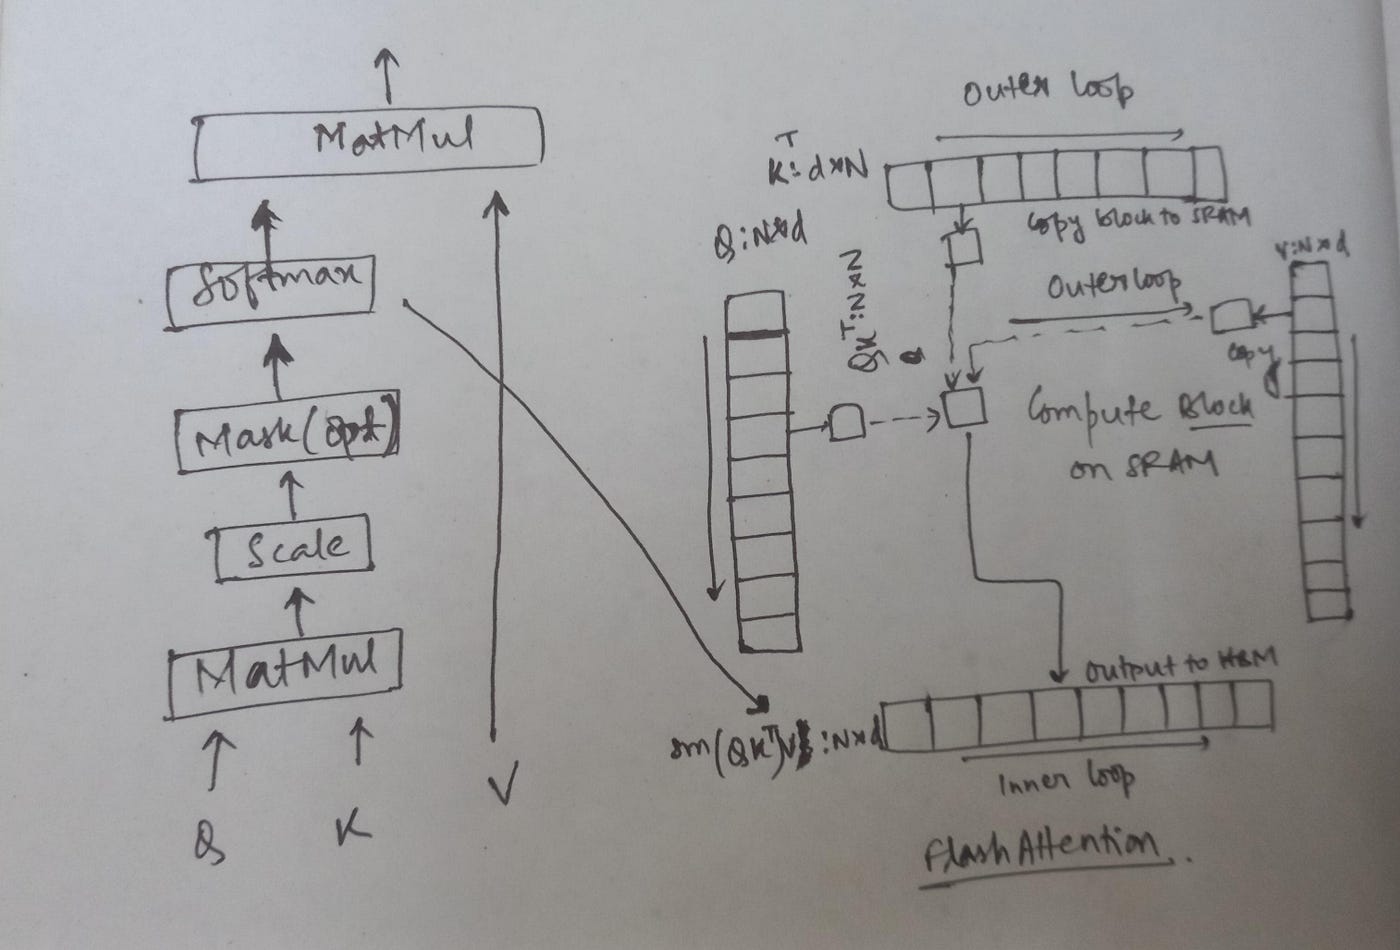 MatMul
Softmax
Mask (opt)
Scale
MatMul
Q
K
V
Outer loop
K^T: d×N
Copy block to SRAM
Q: N×d
QK^T: N×N
V: N×d
Outer loop
Copy
Compute Block
on SRAM
Output to HBM
sm(QK^T)V : N×d
Inner loop
FlashAttention.